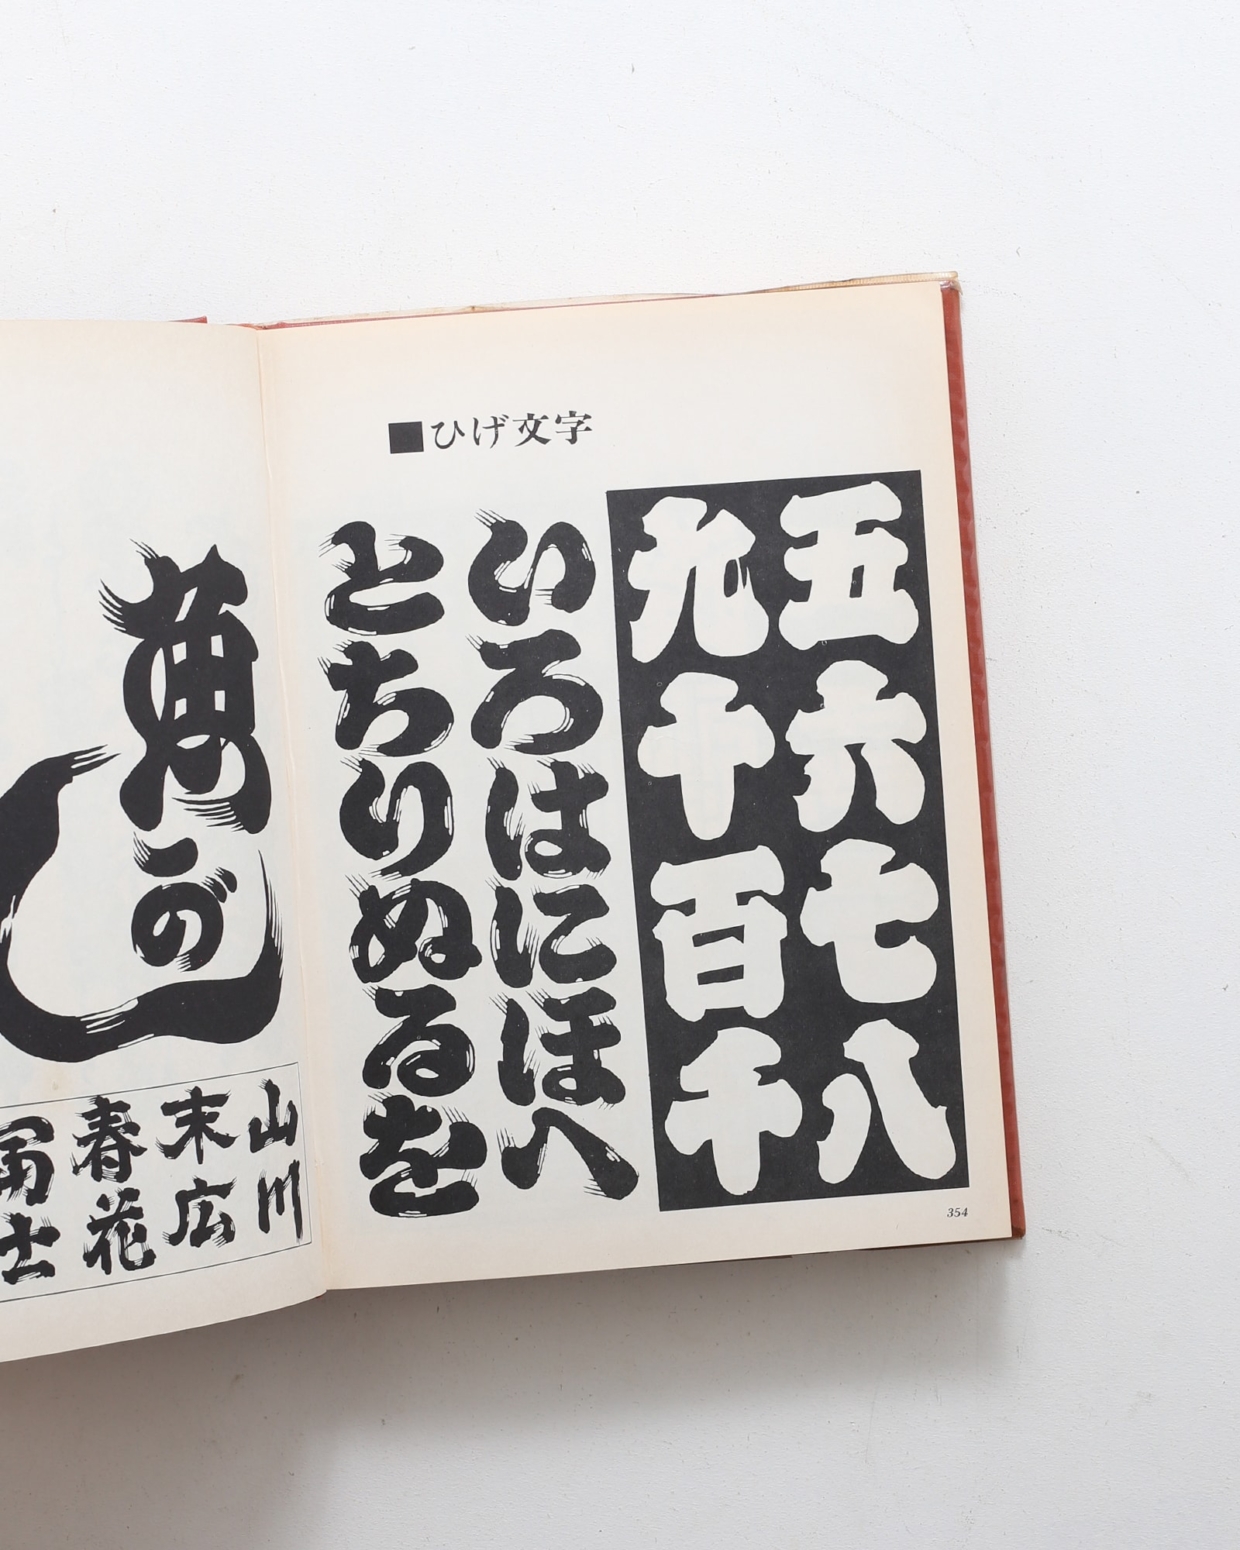 ■ひげ文字
五六七八
九十百千
いろはにほへ
とちりぬるを
354
山川
末広
春花
富士